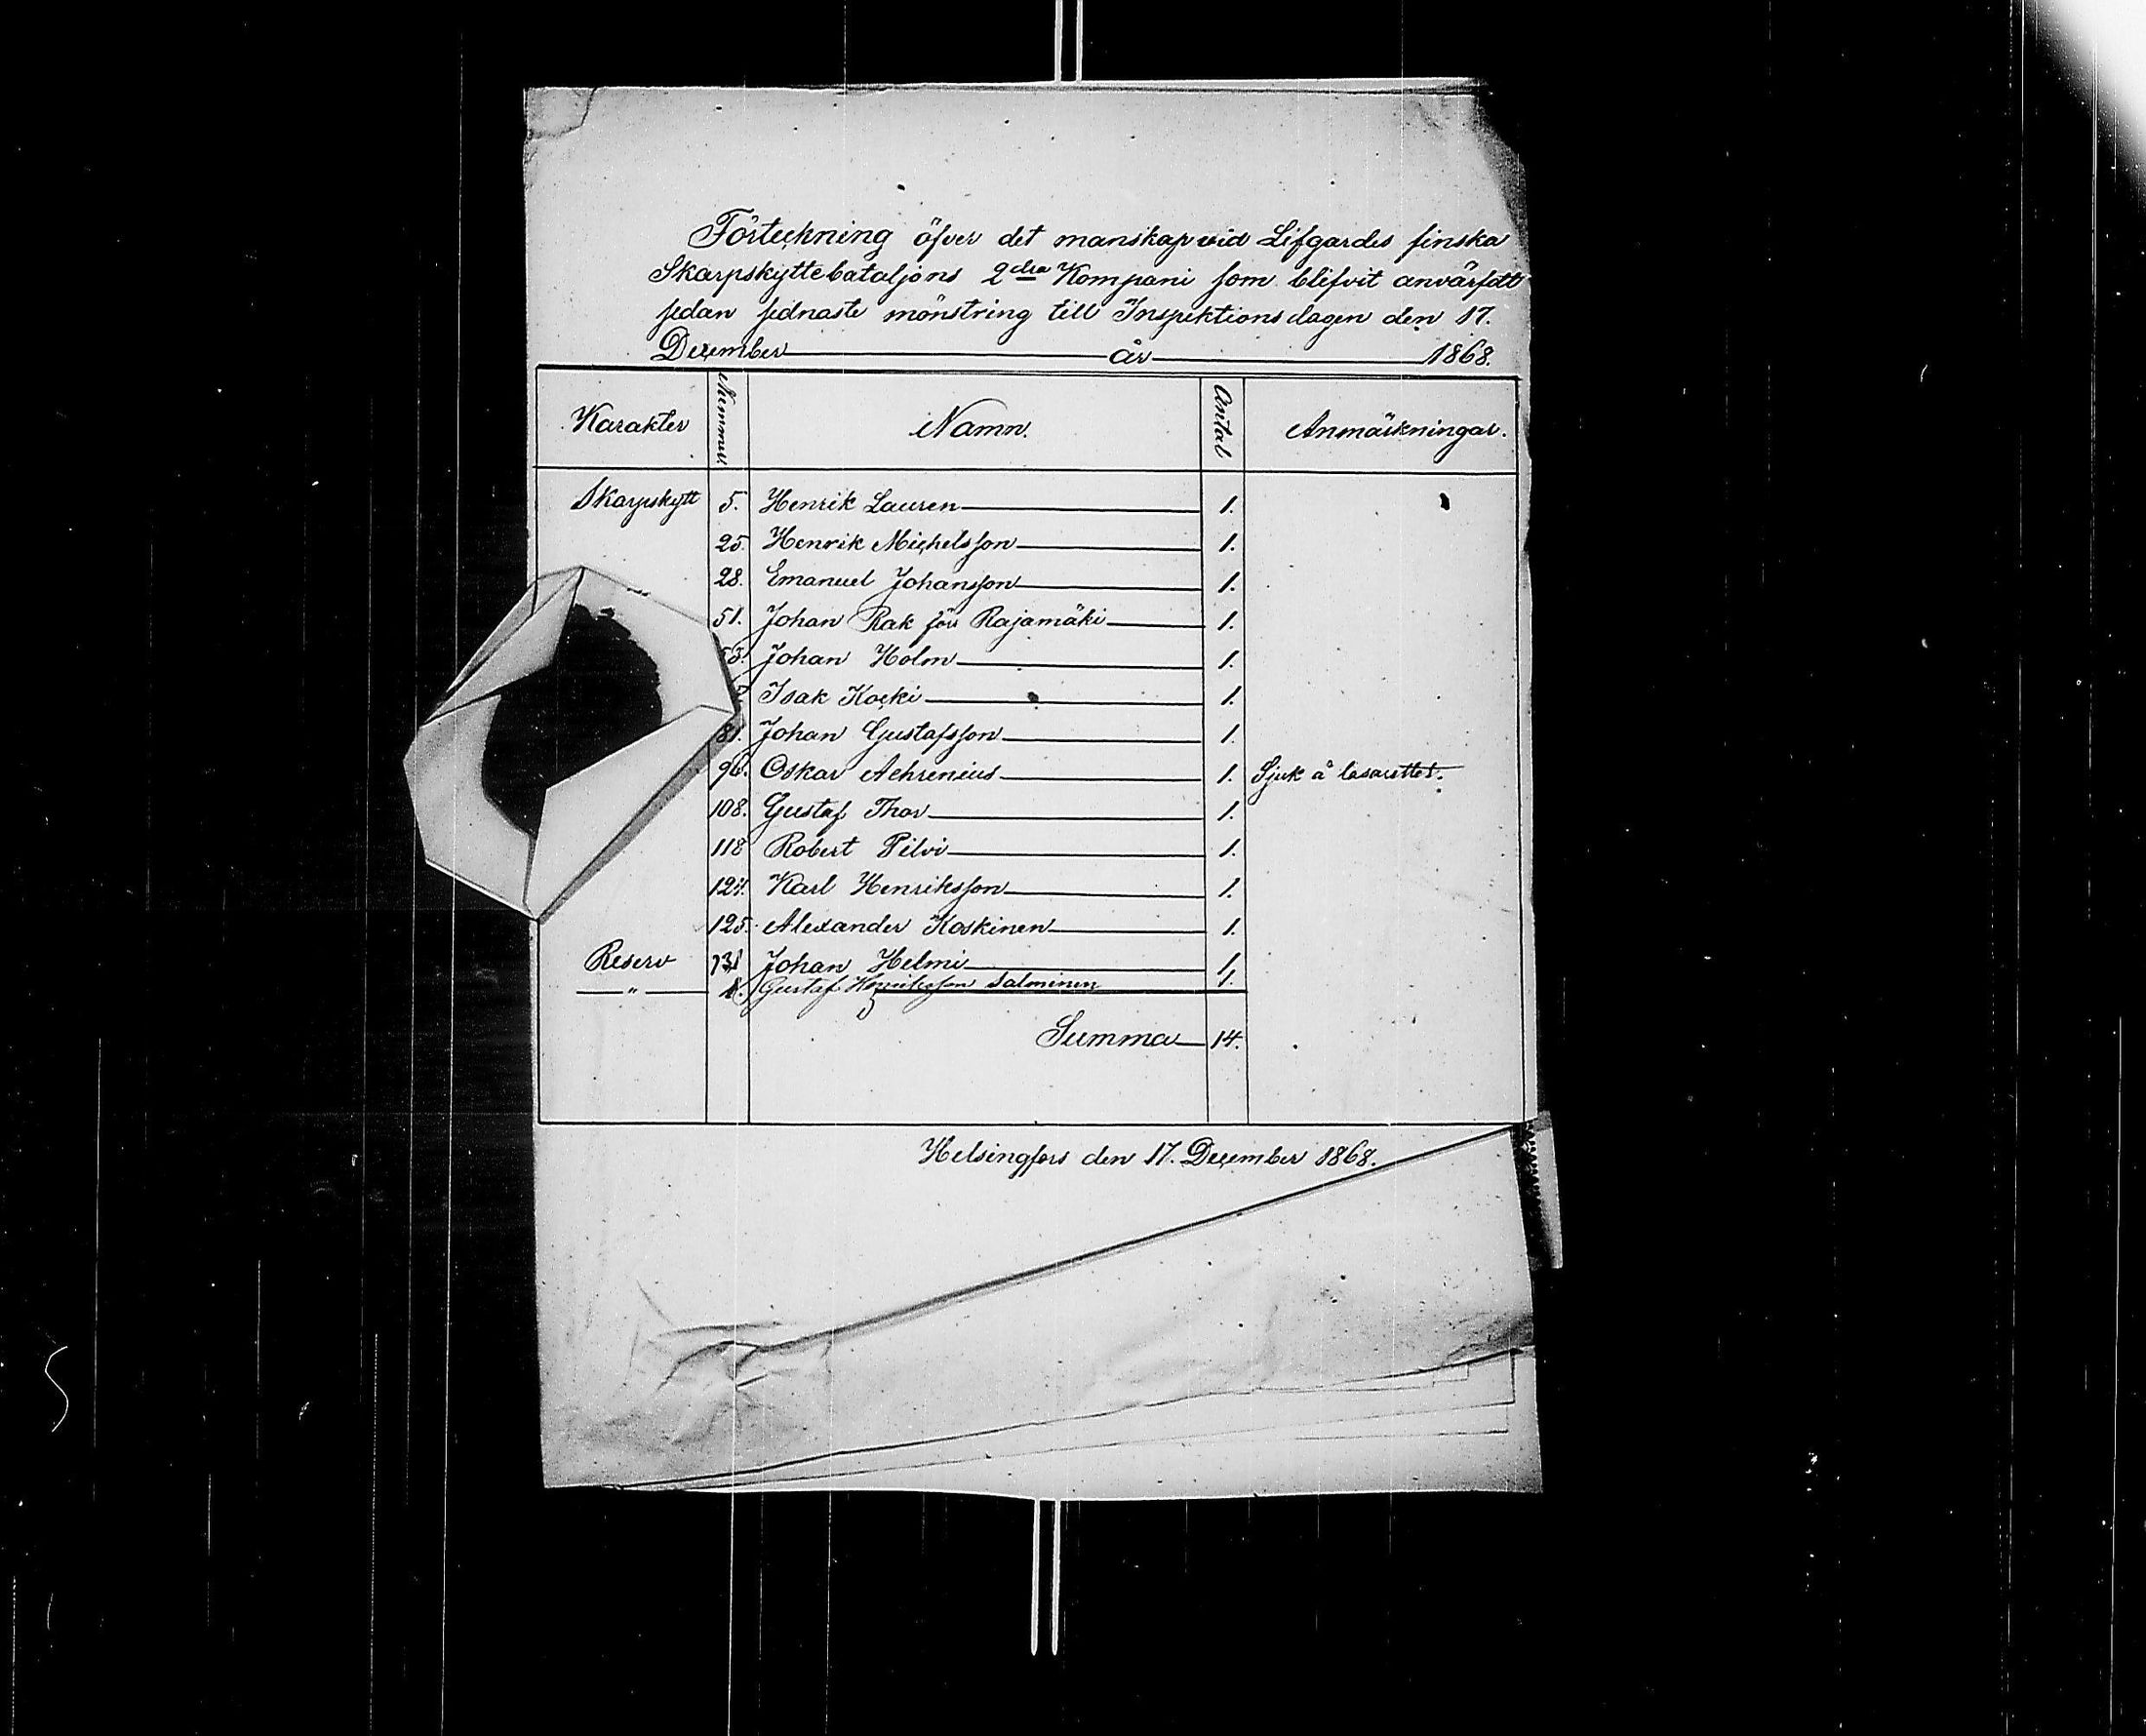 Förteckning öfver det manskap vid Lifgardes finska
Skarpskyttebataljons 2dra Kompani som blifvit anvärfdt
sedan sednaste mönstring till Inspektionsdagen den 17.
December år 1868.
Karakter Nummer. Namn. Antal Anmärkningar.
Skarpskytt 5. Henrik Lauren 1.
25. Henrik Michelsson 1.
28. Emanuel Johansson 1.
51. Johan Rak förr Rajamäki 1.
53. Johan Holm 1.
Isak Kocki 1.
81. Johan Gustafsson 1.
96. Oskar Aehrenius 1. Sjuk å lasarettet.
108. Gustaf Thor 1.
118 Robert Pilvi 1.
124. Karl Henriksson 1.
125. Alexander Koskinen 1.
Reserv 131 Johan Helmi 1.
" Gustaf Henriksson Salminen 1.
Summa 14.
Helsingfors den 17. December 1868.